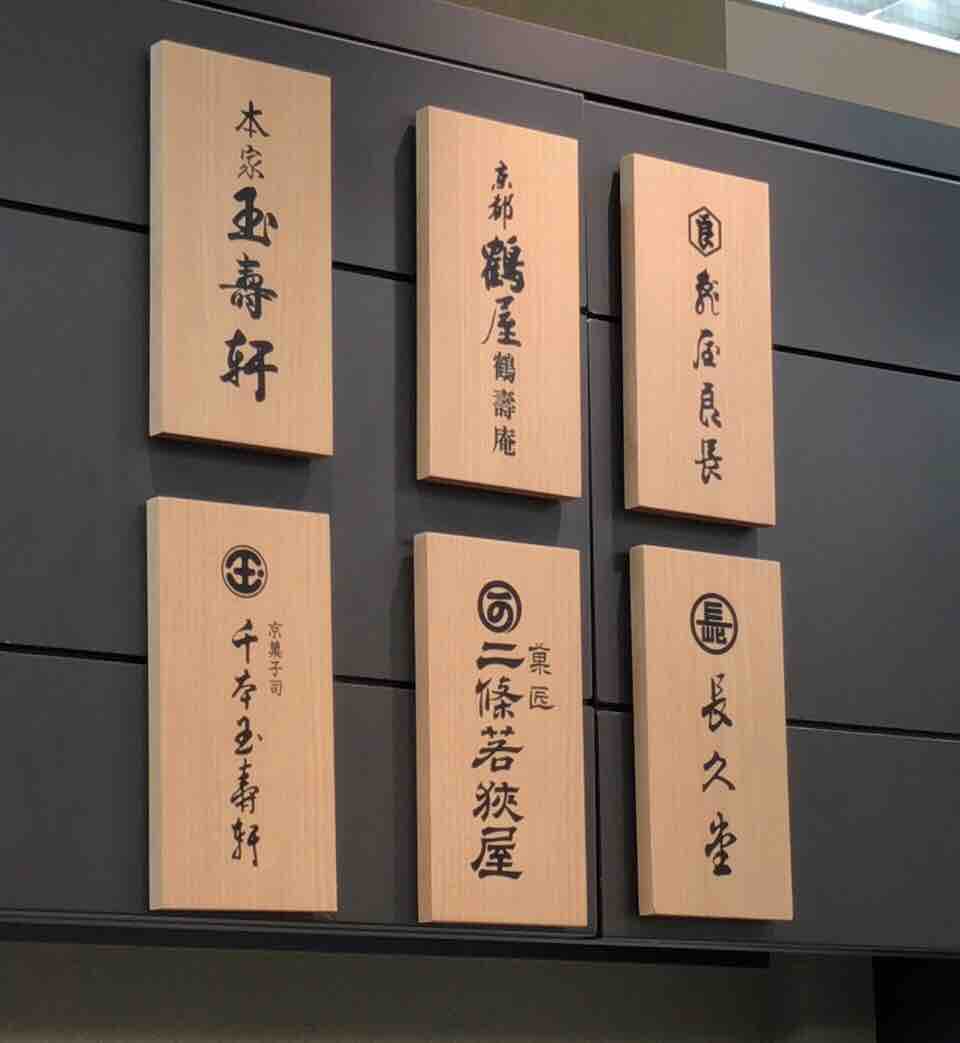 本家玉壽軒
京都鶴屋鶴壽庵
良
亀屋良長
京菓子司
千本玉壽軒
菓匠
二條若狹屋
長久堂